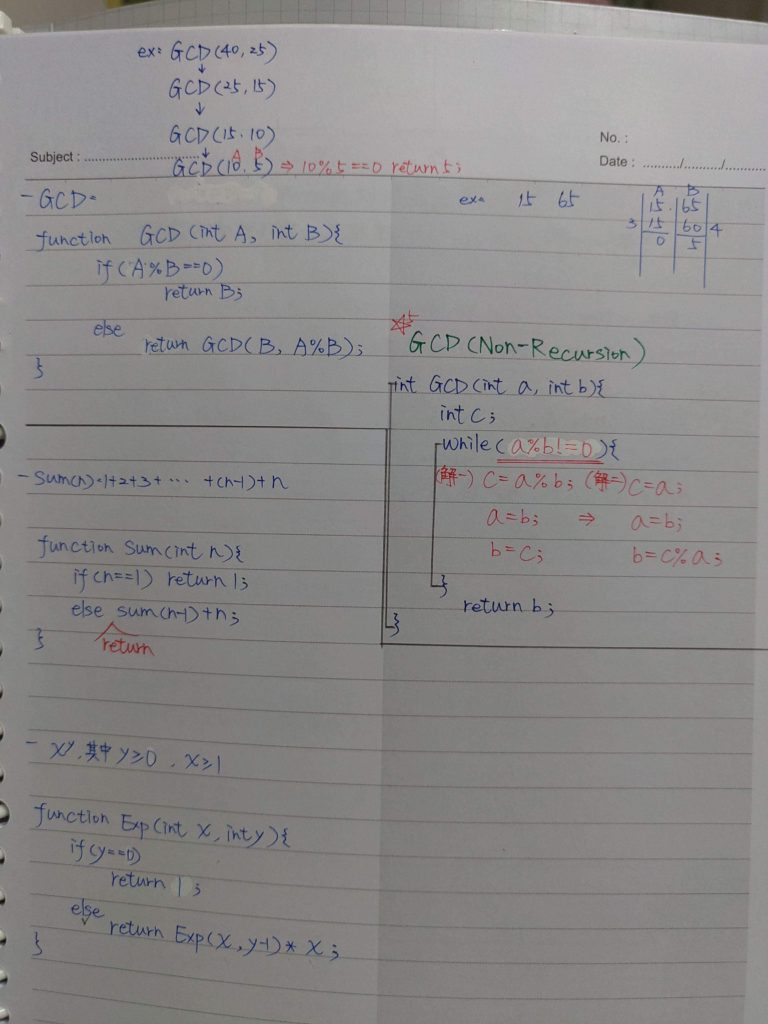 ex: GCD(40,25)
↓
GCD(25,15)
↓
GCD(15.10)
↓
No. :
Subject :
A B
Date : ........../........../..........
GCD(10,5) ⇒ 10%5==0 return 5;
- GCD:
function GCD (int A, int B){
if(A%B==0)
return B;
else
return GCD(B, A%B);
}
ex: 15 65
A B
15 65
3 15 60 4
0 5
☆5
GCD(Non-Recursion)
int GCD(int a, int b){
int c;
while(a%b!=0){
(解一) c=a%b; (解二) c=a;
a=b; ⇒ a=b;
b=c; b=c%a;
}
return b;
}
- Sum(n)=1+2+3+ ... +(n-1)+n
function Sum(int n){
if(n==1) return 1;
else sum(n-1)+n;
return
}
- X^y,其中 y≥0 , x≥1
function Exp(int X, int y){
if(y==0)
return 1;
else
return Exp(X,y-1)* X;
}